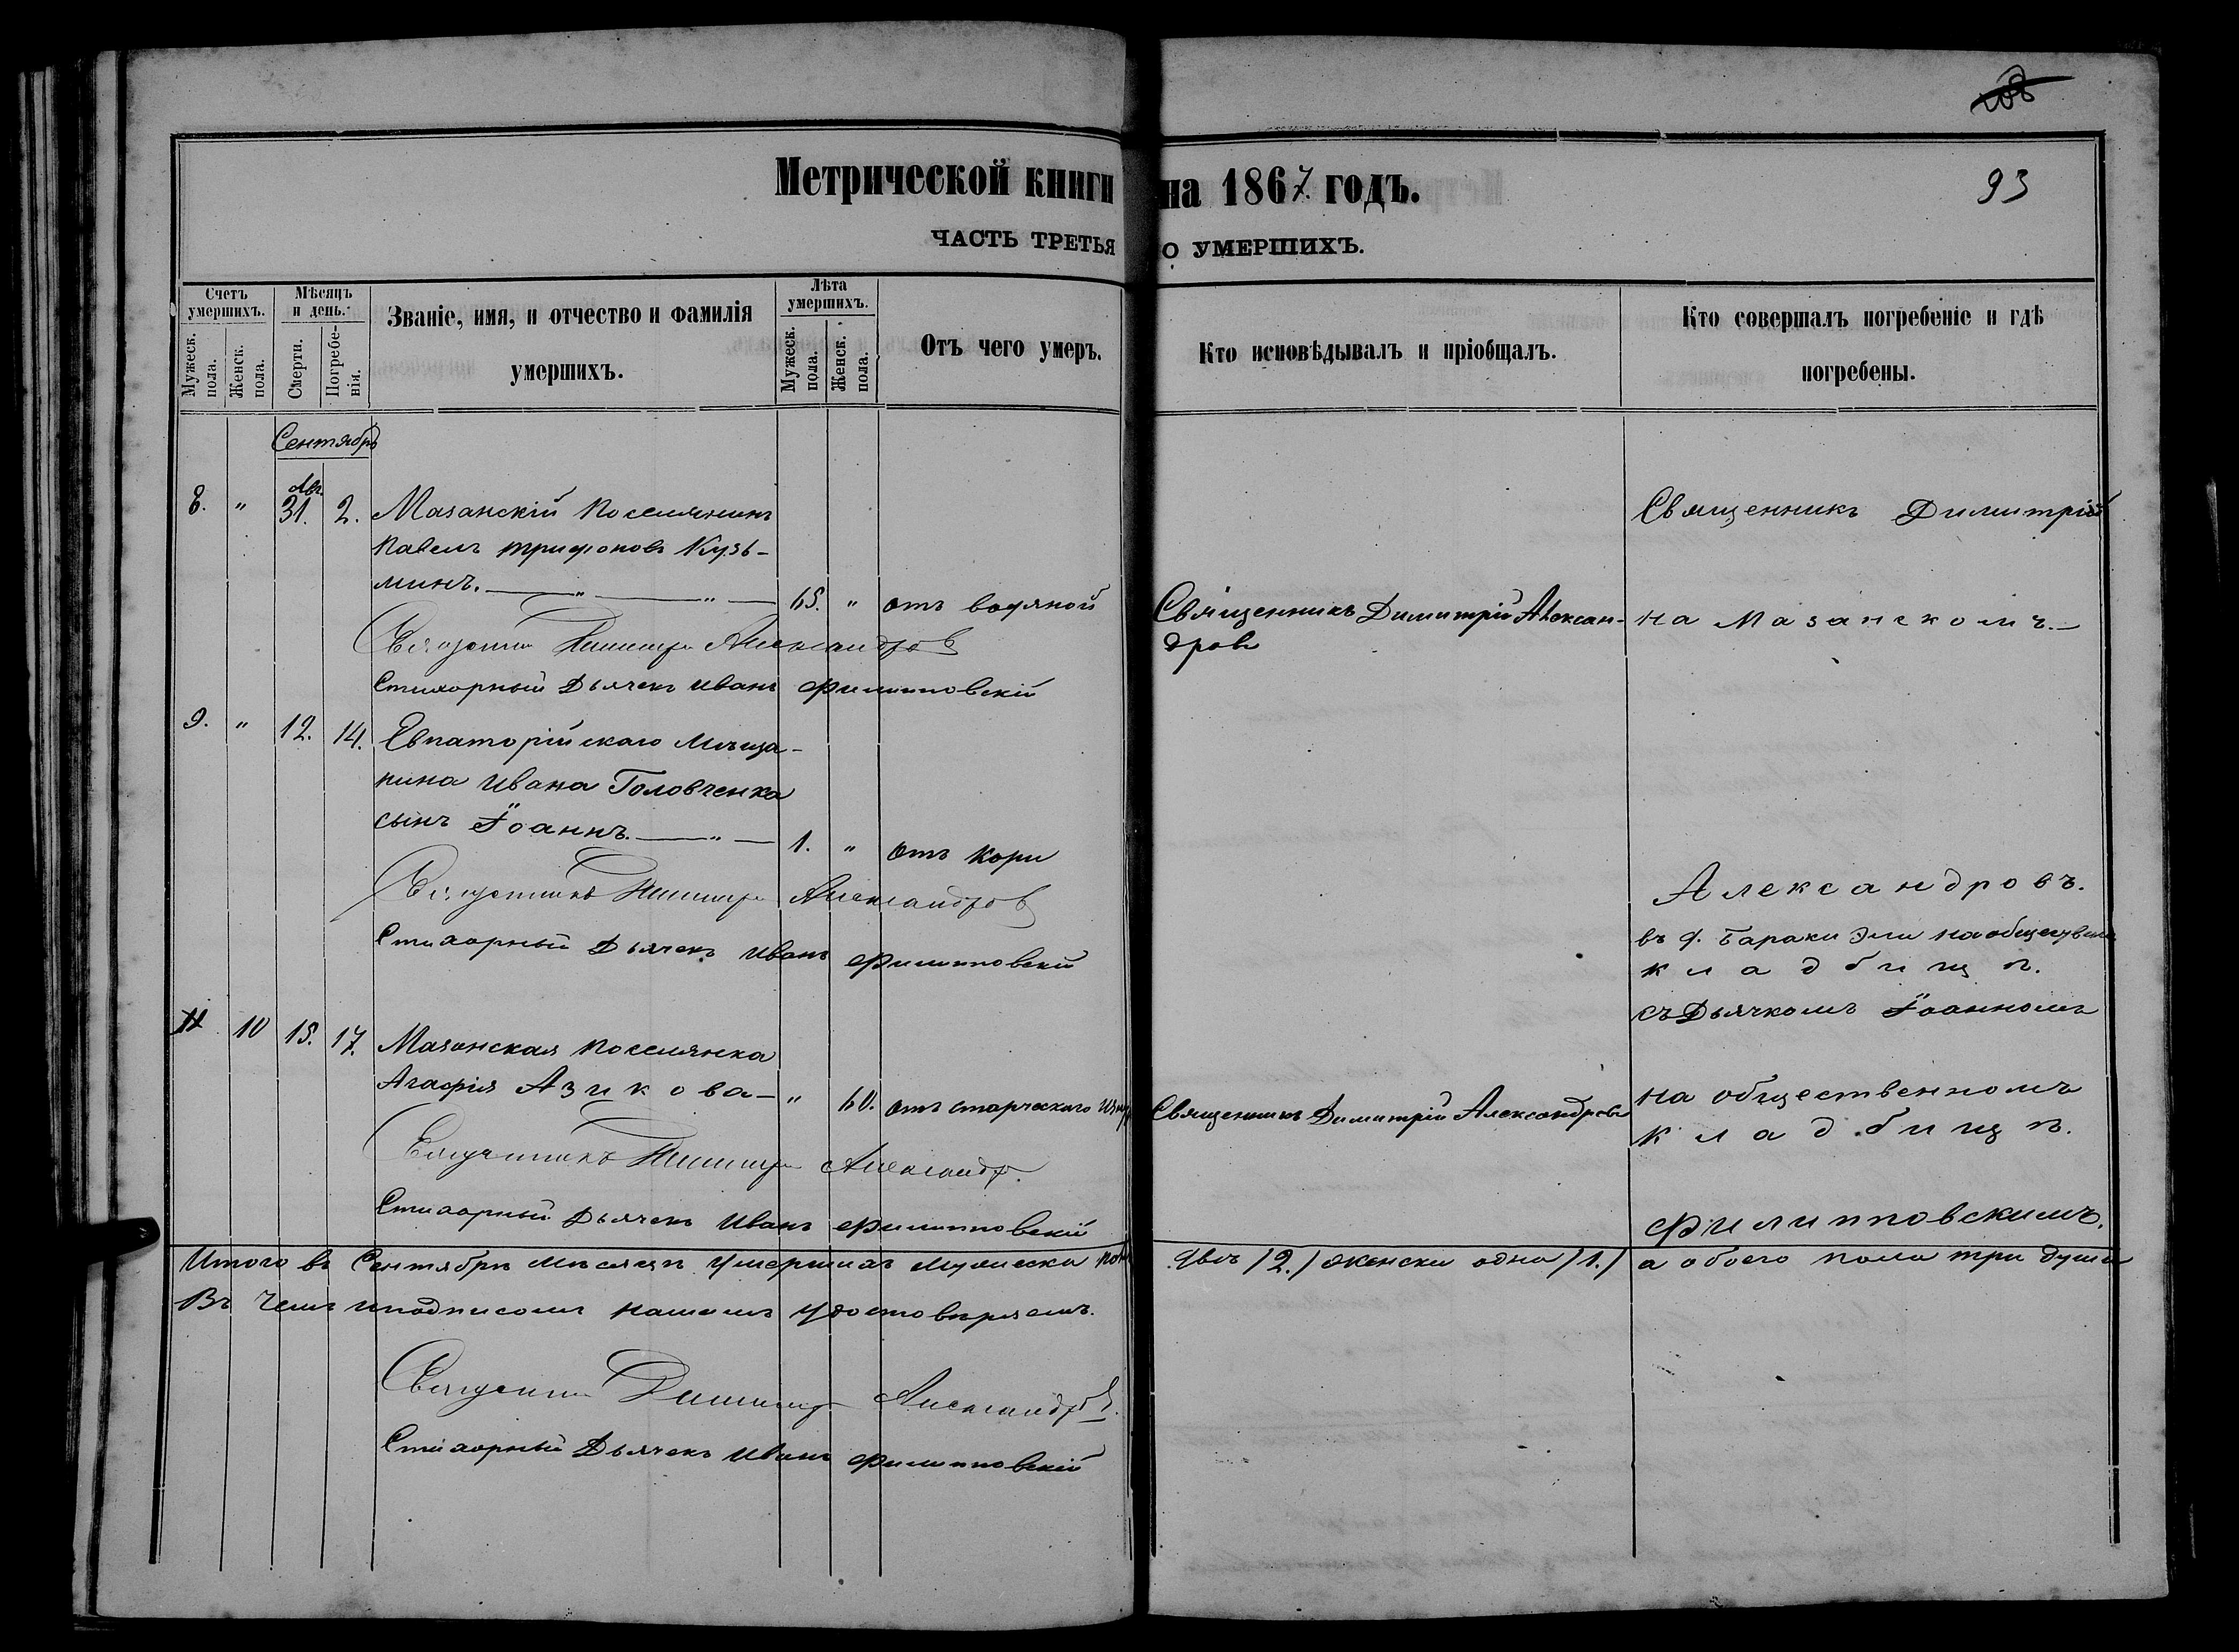 108
Метрической книги на 1867. годъ.
93
ЧАСТЬ ТРЕТЬЯ О УМЕРШИХЪ.
Счетъ умершихъ.
Мужеск. пола.
Женск. пола.
Мѣсяцъ и день.
Смерти.
Погребе-
нія.
Званіе, имя, и отчество и фамилія
умершихъ.
Лѣта умершихъ.
Мужеск. пола.
Женск. пола.
Отъ чего умеръ.
Кто исповѣдывалъ и пріобщалъ.
Кто совершалъ погребеніе и гдѣ
погребены.
Сентябрь
Авг.
8. " 31. 2. Мазанскій поселянинъ
Павелъ Трифоновъ Кузь-
минъ. — " — " — 65. " отъ водяной
Священникъ Димитрій Алексан-
дровъ
Священникъ Димитрій
на Мазанскомъ. —
Священникъ Димитрій Александров
Стихарный Дьячекъ Иванъ Филипповскій
9. " 12. 14. Евпаторійскаго мѣща-
нина Ивана Головченка
сынъ Іоаннъ. — " — 1. " отъ кори
Священникъ Димитрій Александров
Стихарный Дьячекъ Иванъ Филипповскій
Александровъ.
въ д. Бараки Эли на обществен
кладбищѣ.
съ Дьячкомъ Іоанномъ
11 10 15. 17. Мазанская поселянка
Агафія Азикова — " 60. отъ старческаго
Священникъ Димитрій Александровъ
на общественномъ
кладбищѣ.
Священникъ Димитрій Александр.
Стихарный Дьячекъ Иванъ Филипповскій
Филипповскимъ.
Итого въ Сентябрѣ мѣсяцѣ умершихъ мужеска пола двѣ /2./ женска одна /1./ а обоего пола три души
Въ чемъ и подписомъ нашимъ удостовѣряемъ.
Священник Димитрій Александровъ.
Стихарный Дьячекъ Иванъ Филипповскій